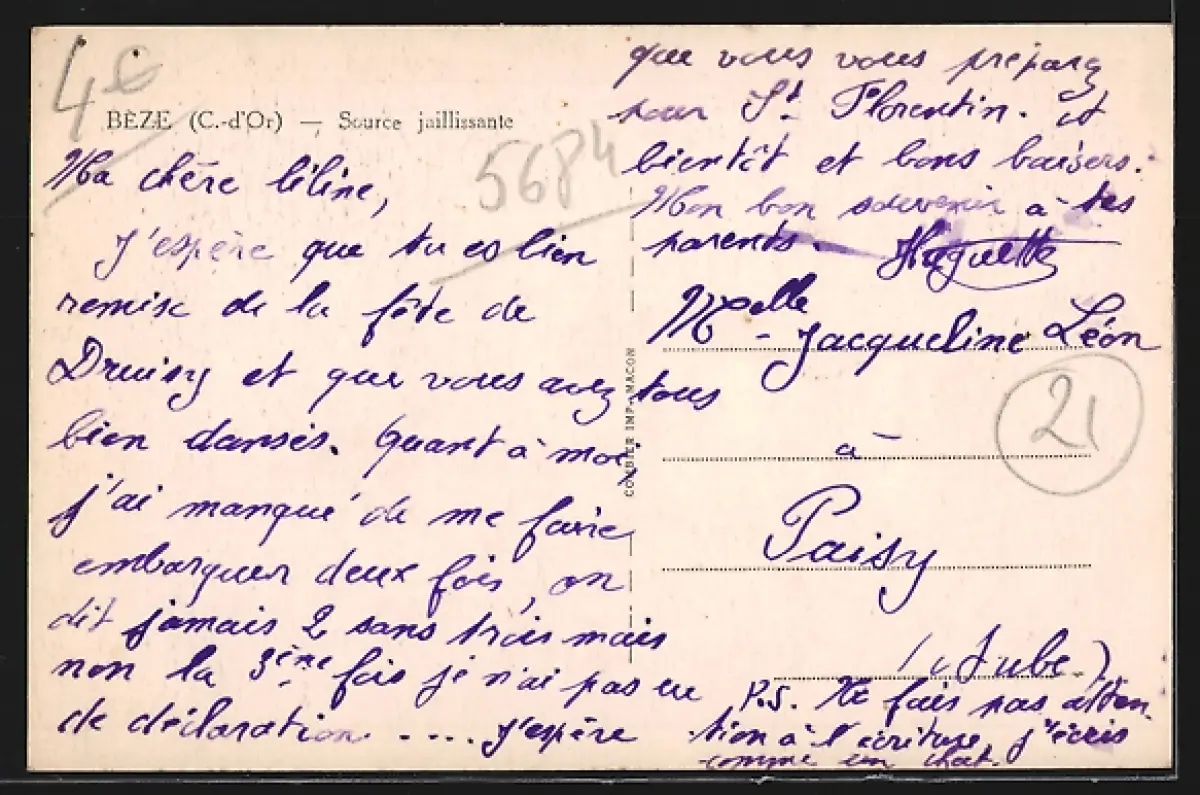 4€
BÈZE (C.-d'Or) — Source jaillissante
5684
Ma chère liline,
J'espère que tu es bien
remise de la fête de
Druisy et que vous avez tous
bien dansés. Quant à moi,
j'ai manqué de me faire
embarquer deux fois, on
dit jamais 2 sans trois mais
non la 3ème fois je n'ai pas eu
de déclaration..... J'espère
que vous vous préparez
pour St Florentin. et
bientôt et bons baisers.
Mon bon souvenir à tes
parents. Huguette
COMBIER IMP. MACON
Melle Jacqueline Léon
à
Paisy
(Aube.)
21
P.S. Ne fais pas atten-
tion à l'écriture, j'écris
comme un chat.